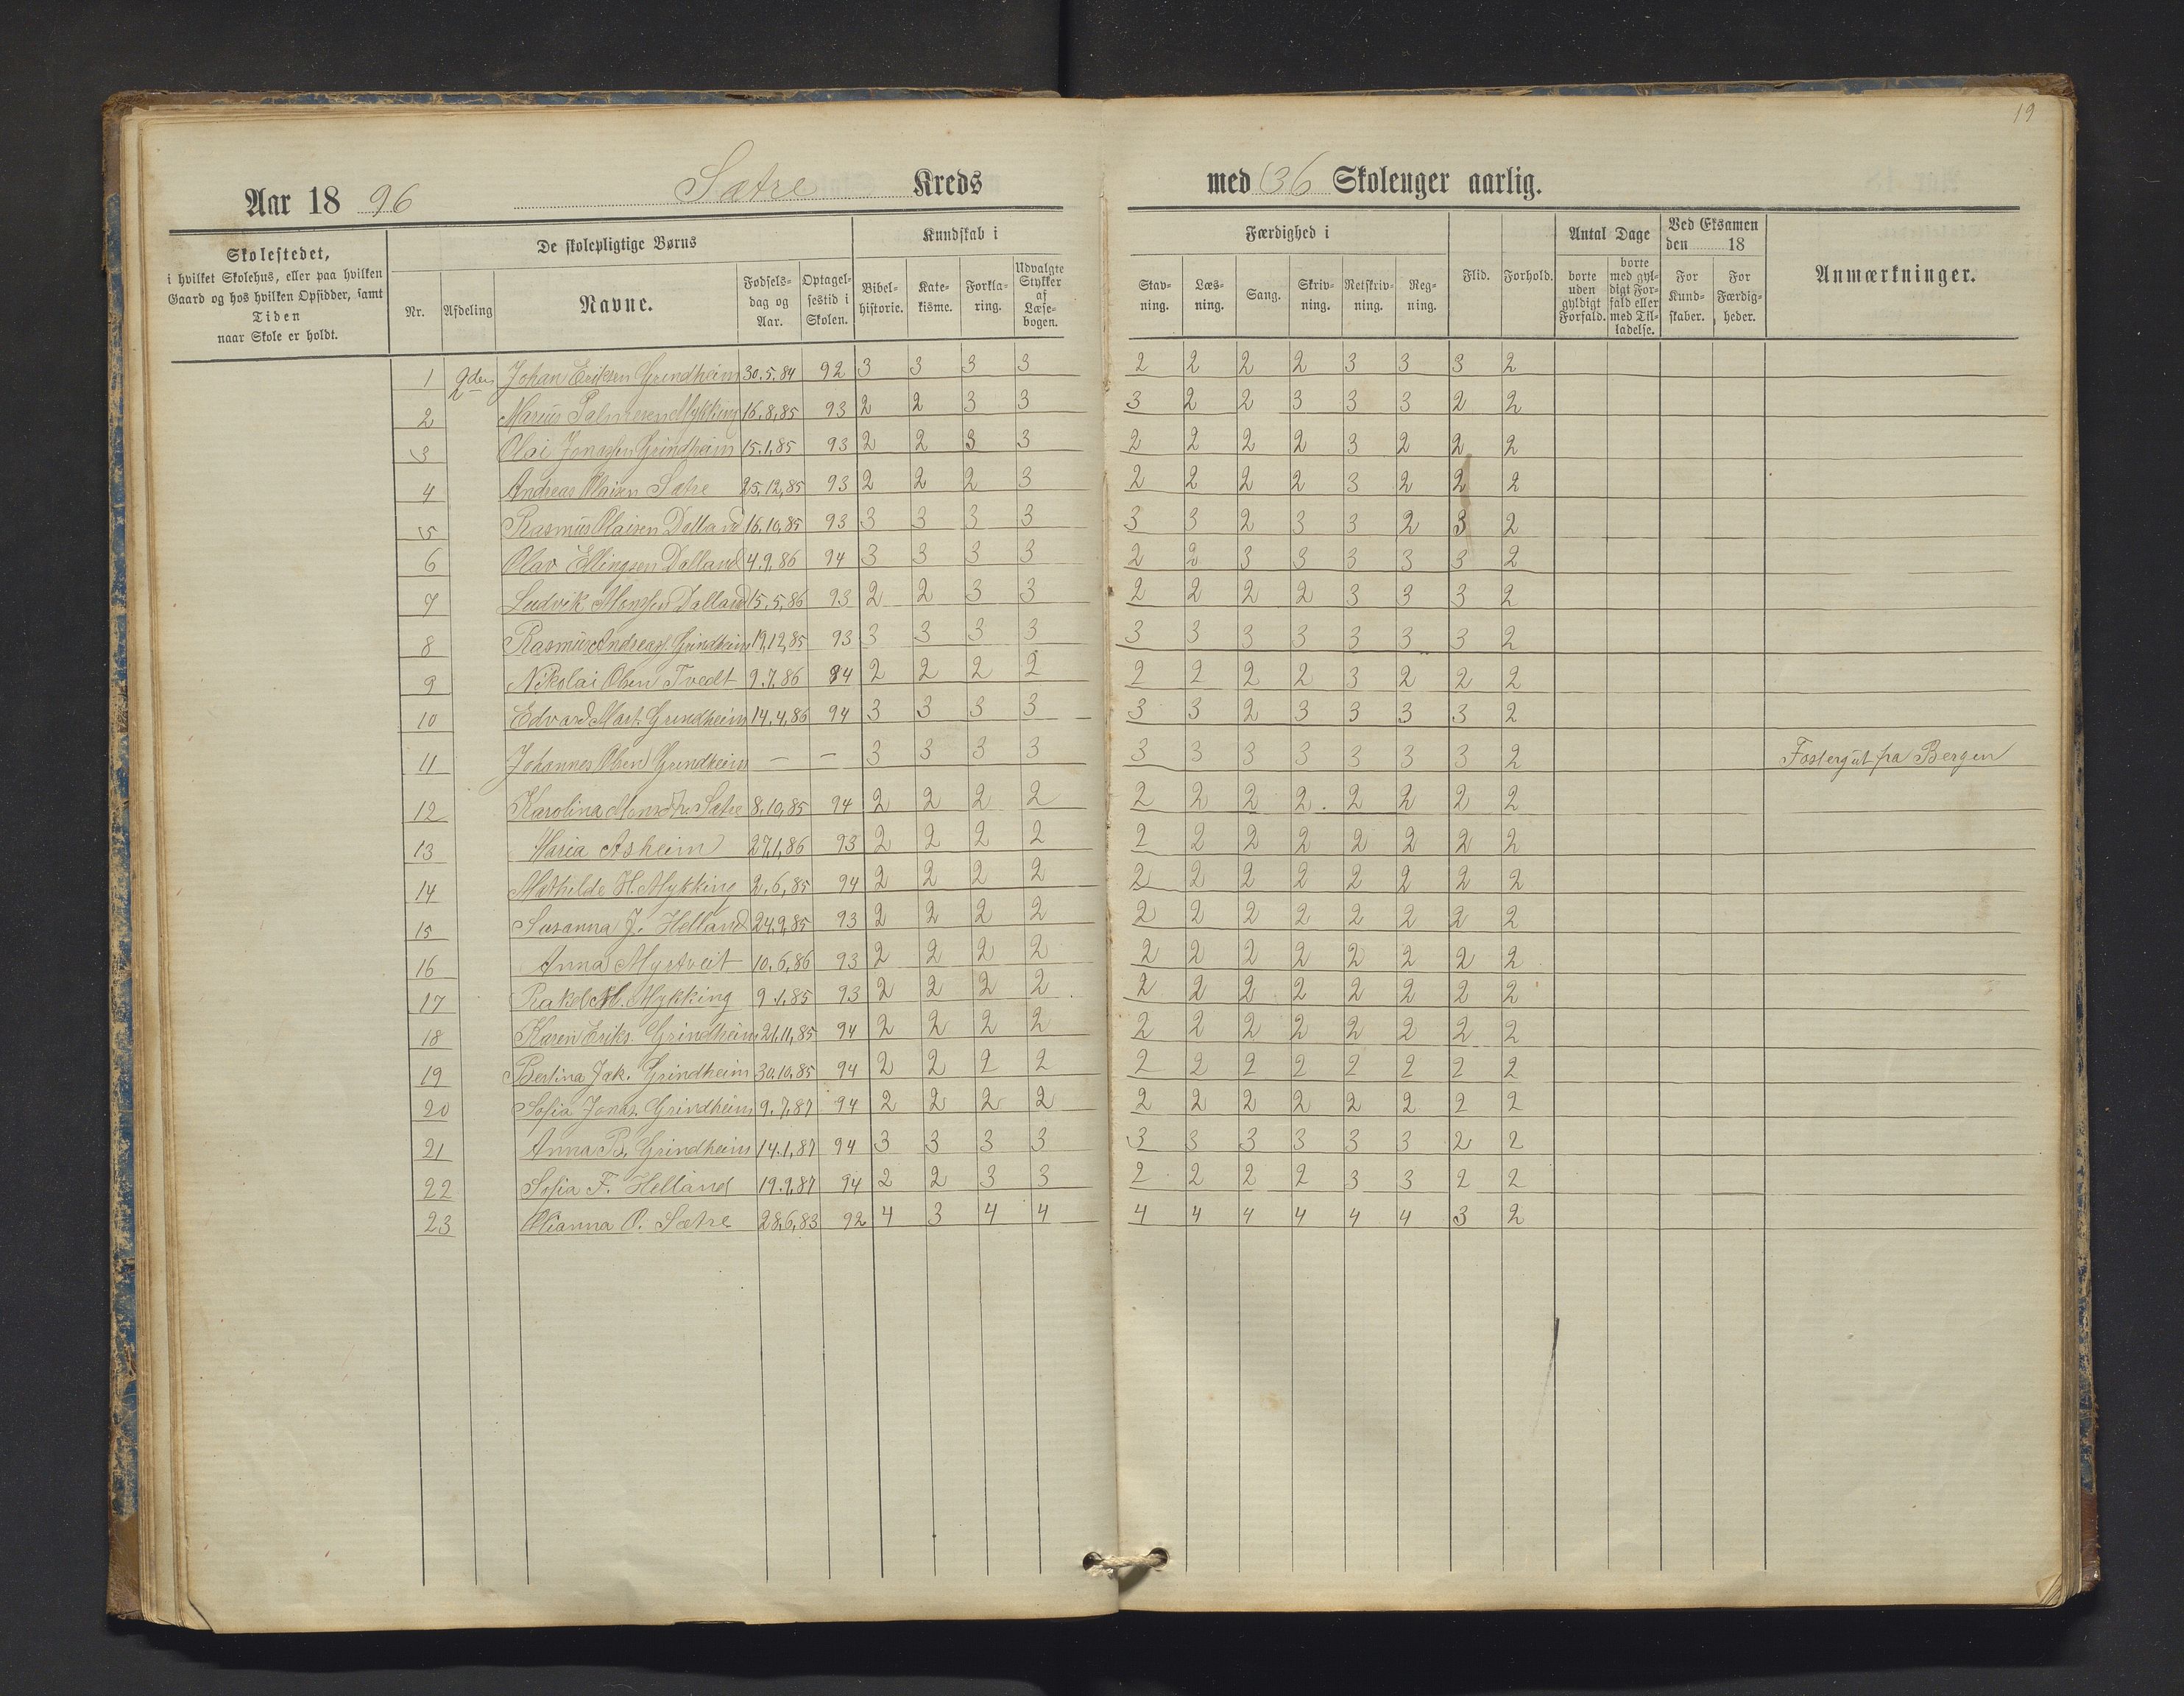 19
Aar 18 96 Sætre Kreds med 36 Skoleuger aarlig.
Skolestedet, i hvilket Skolehus, eller paa hvilken Gaard og hos hvilken Opsidder, samt Tiden naar Skole er holdt.
De skolepligtige Børns
Kundskab i
Færdighed i
Antal Dage
Ved Eksamen den 18
Nr. Afdeling Navne. Fødselsdag og Aar. Optagelsestid i Skolen. Bibelhistorie. Katekisme. Forklaring. Udvalgte Stykker af Læsebogen. Stavning. Læsning. Sang. Skrivning. Retskrivning. Regning. Flid. Forhold. borte uden gyldigt Forfald. borte med gyldigt Forfald eller med Tilladelse. For Kundskaber. For Færdigheder. Anmærkninger.
1 2den Johan Eriksen Grindheim 30.5.84 92 3 3 3 3 2 2 2 2 3 3 3 2
2 Marius Salmesen Mykking 16.8.85 93 2 2 3 3 3 2 2 3 3 3 2 2
3 Olai Jonassen Grindheim 15.1.85 93 2 2 3 3 2 2 2 2 3 2 2 2
4 Andreas Olaisen Sætre 25.12.85 93 2 2 2 3 2 2 2 2 3 2 2 2
5 Rasmus Olaisen Dalland 16.10.85 93 3 3 3 3 3 3 2 3 3 2 3 2
6 Olav Ellingsen Dalland 4.9.86 94 3 3 3 3 2 2 3 3 3 3 3 2
7 Ludvik Monssen Dalland 15.5.86 93 2 2 3 3 2 2 2 2 3 3 3 2
8 Rasmus Andreass. Grindheim 19.12.85 93 3 3 3 3 3 3 3 3 3 3 3 2
9 Nikolai Olsen Tvedt 9.7.86 94 2 2 2 2 2 2 2 2 3 2 2 2
10 Edvard Mart. Grindheim 14.4.86 94 3 3 3 3 3 3 2 3 3 3 3 2
11 Johannes Olsen Grindheim — — 3 3 3 3 3 3 3 3 3 3 3 2 Fostergut fra Bergen
12 Karolina Monsdtr. Sætre 8.10.85 94 2 2 2 2 2 2 2 2 2 2 2 2
13 Maria Åsheim 27.1.86 93 2 2 2 2 2 2 2 2 2 2 2 2
14 Mathilde H. Mykking 2.6.85 94 2 2 2 2 2 2 2 2 2 2 2 2
15 Susanna J. Helland 24.9.85 93 2 2 2 2 2 2 2 2 2 2 2 2
16 Anna Myrtveit 10.6.86 93 2 2 2 2 2 2 2 2 2 2 2 2
17 Rakel M. Mykking 9.1.85 93 2 2 2 2 2 2 2 2 2 2 2 2
18 Karen Eriks. Grindheim 21.11.85 94 2 2 2 2 2 2 2 2 2 2 2 2
19 Bertina Jak. Grindheim 30.10.85 94 2 2 2 2 2 2 2 2 2 2 2 2
20 Sofia Jonas. Grindheim 9.7.87 94 2 2 2 2 2 2 2 2 2 2 2 2
21 Anna B. Grindheim 14.1.87 94 3 3 3 3 3 3 3 3 3 3 2 2
22 Sofia F. Helland 19.9.87 94 2 2 3 3 2 2 2 2 3 3 2 2
23 Olianna O. Sætre 28.6.83 92 4 3 4 4 4 4 4 4 4 4 3 2